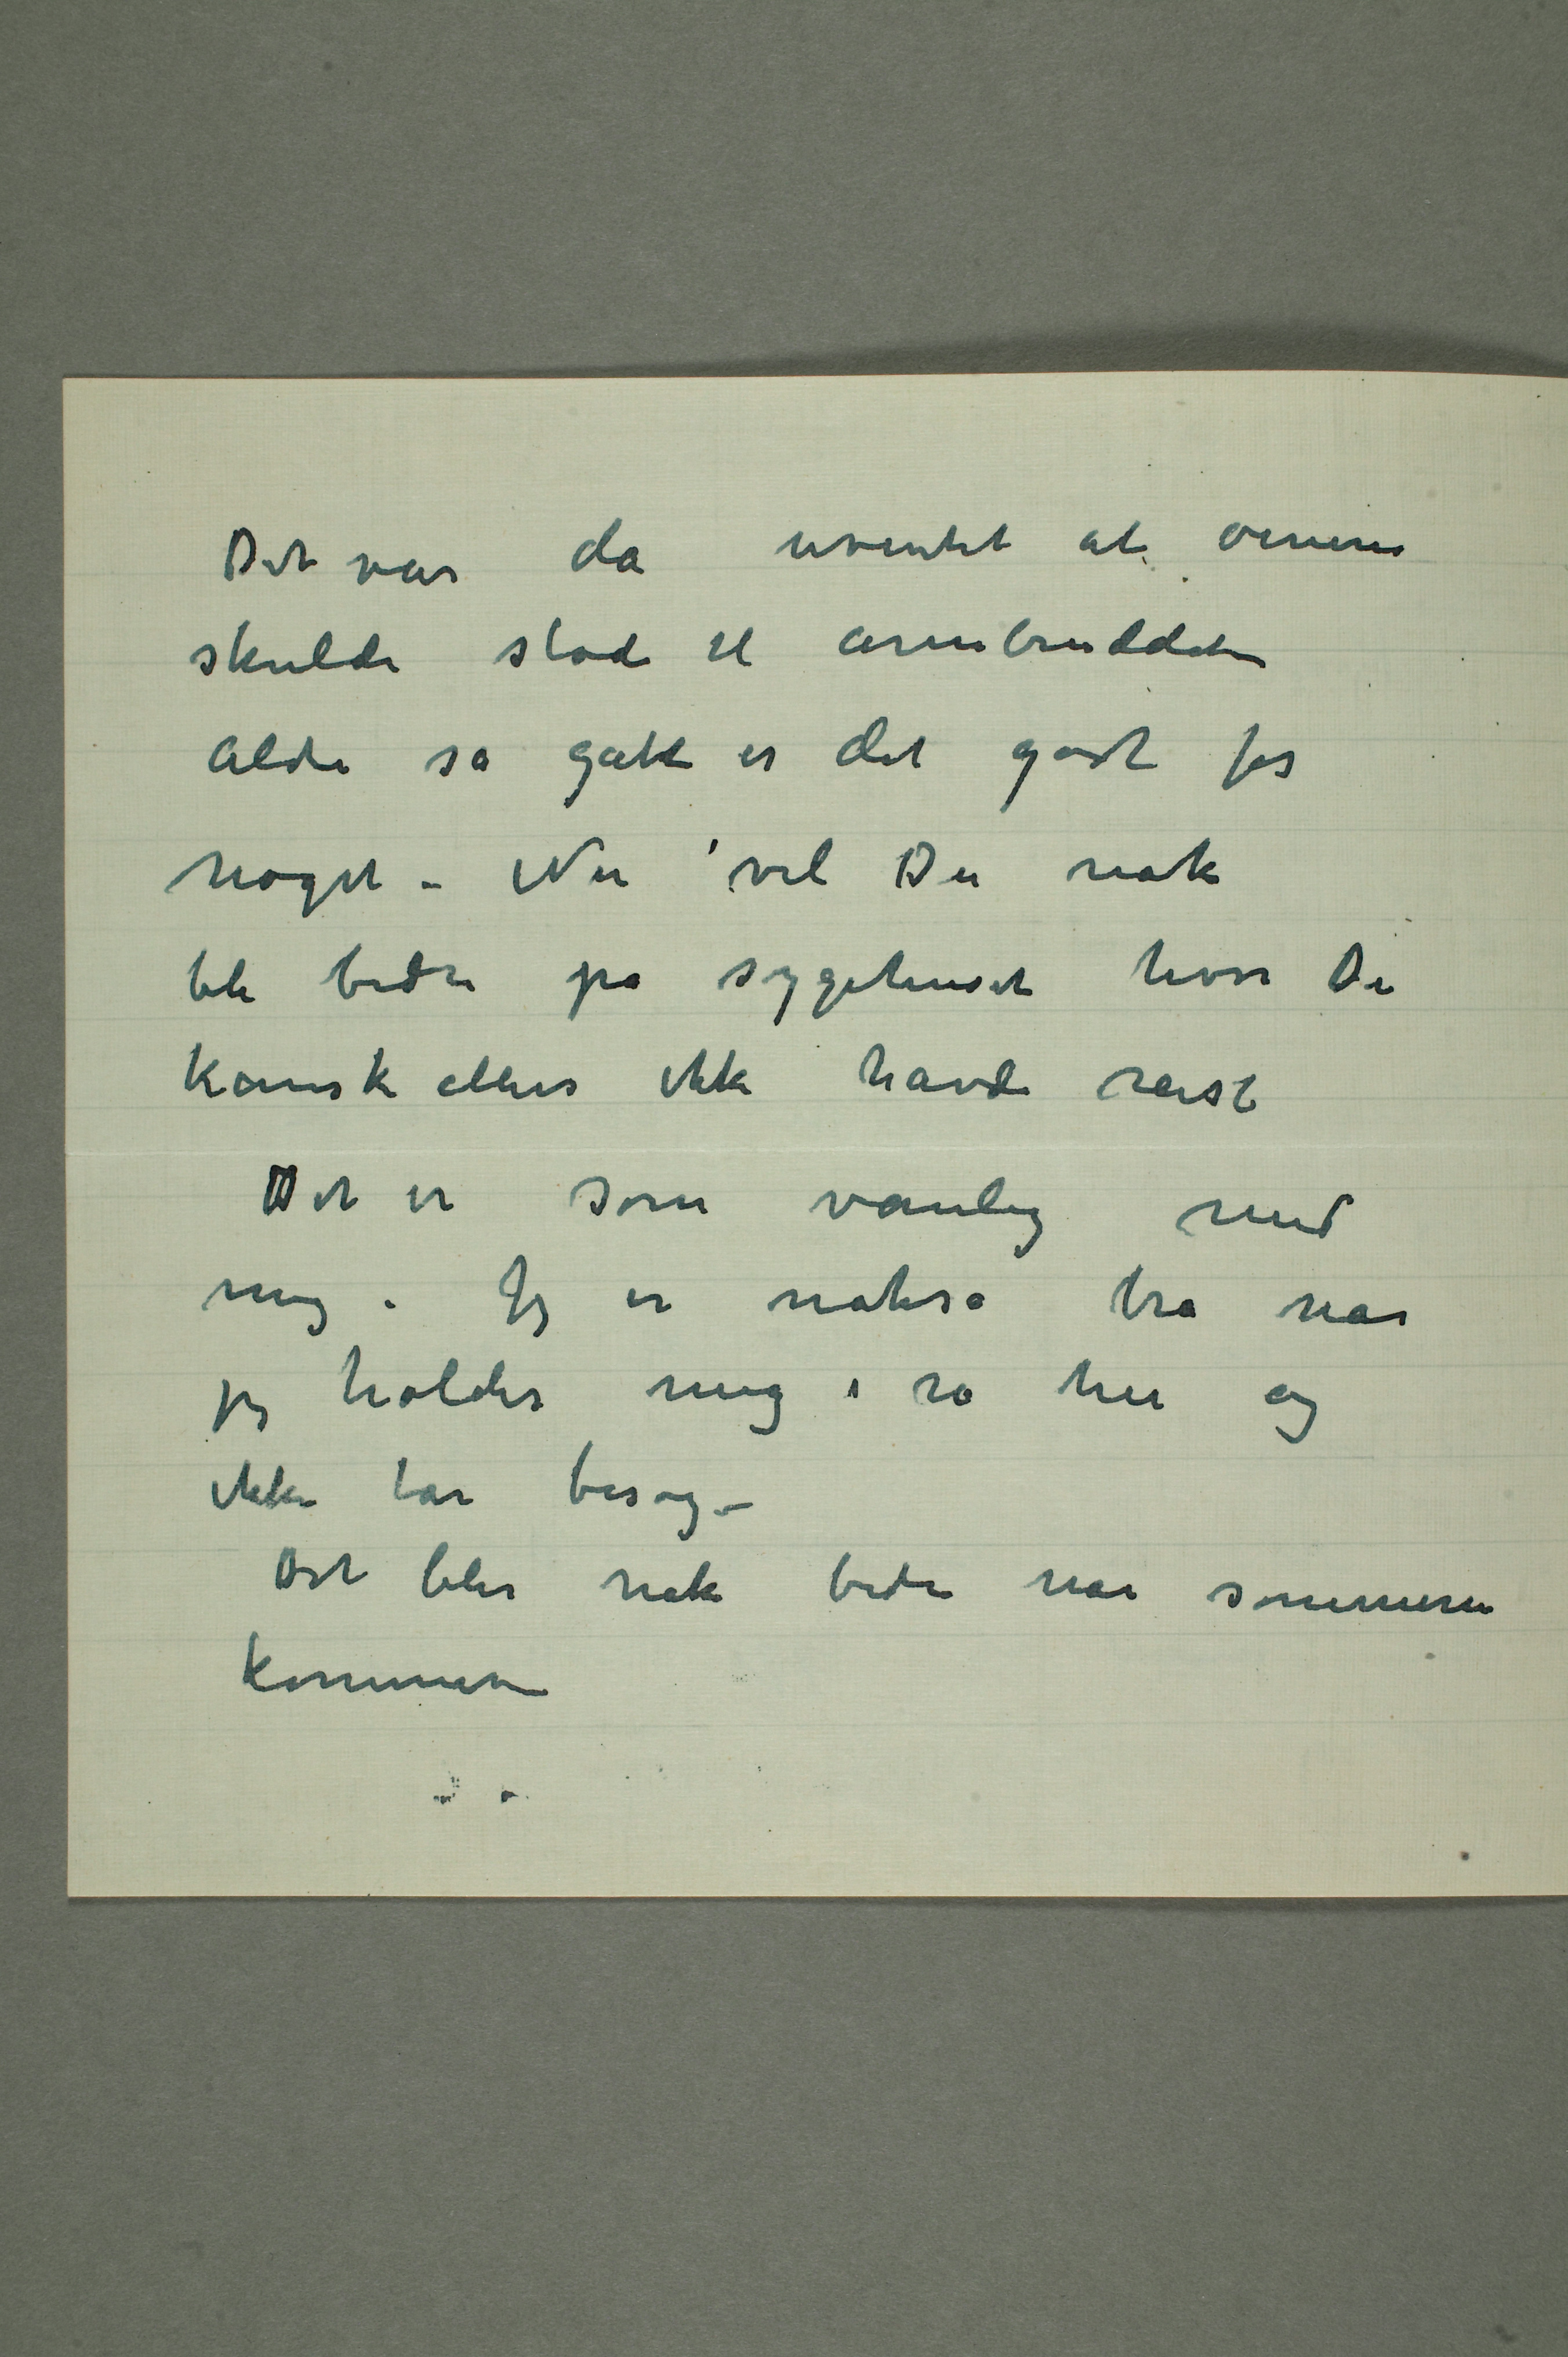 Det var da uventet at
skulde stod til armbruddet
Aldri så galt er det godt for
noget – Nu vil Du nok
bli bedre på sygehuset hvor Du
kanske ellers ikke havde reist
Det er som vanlig med
mig. Jeg er nokså bra når
jeg holder mig i ro her og
ikke tar besøg –
Det blir nok bedre når sommeren
kommer